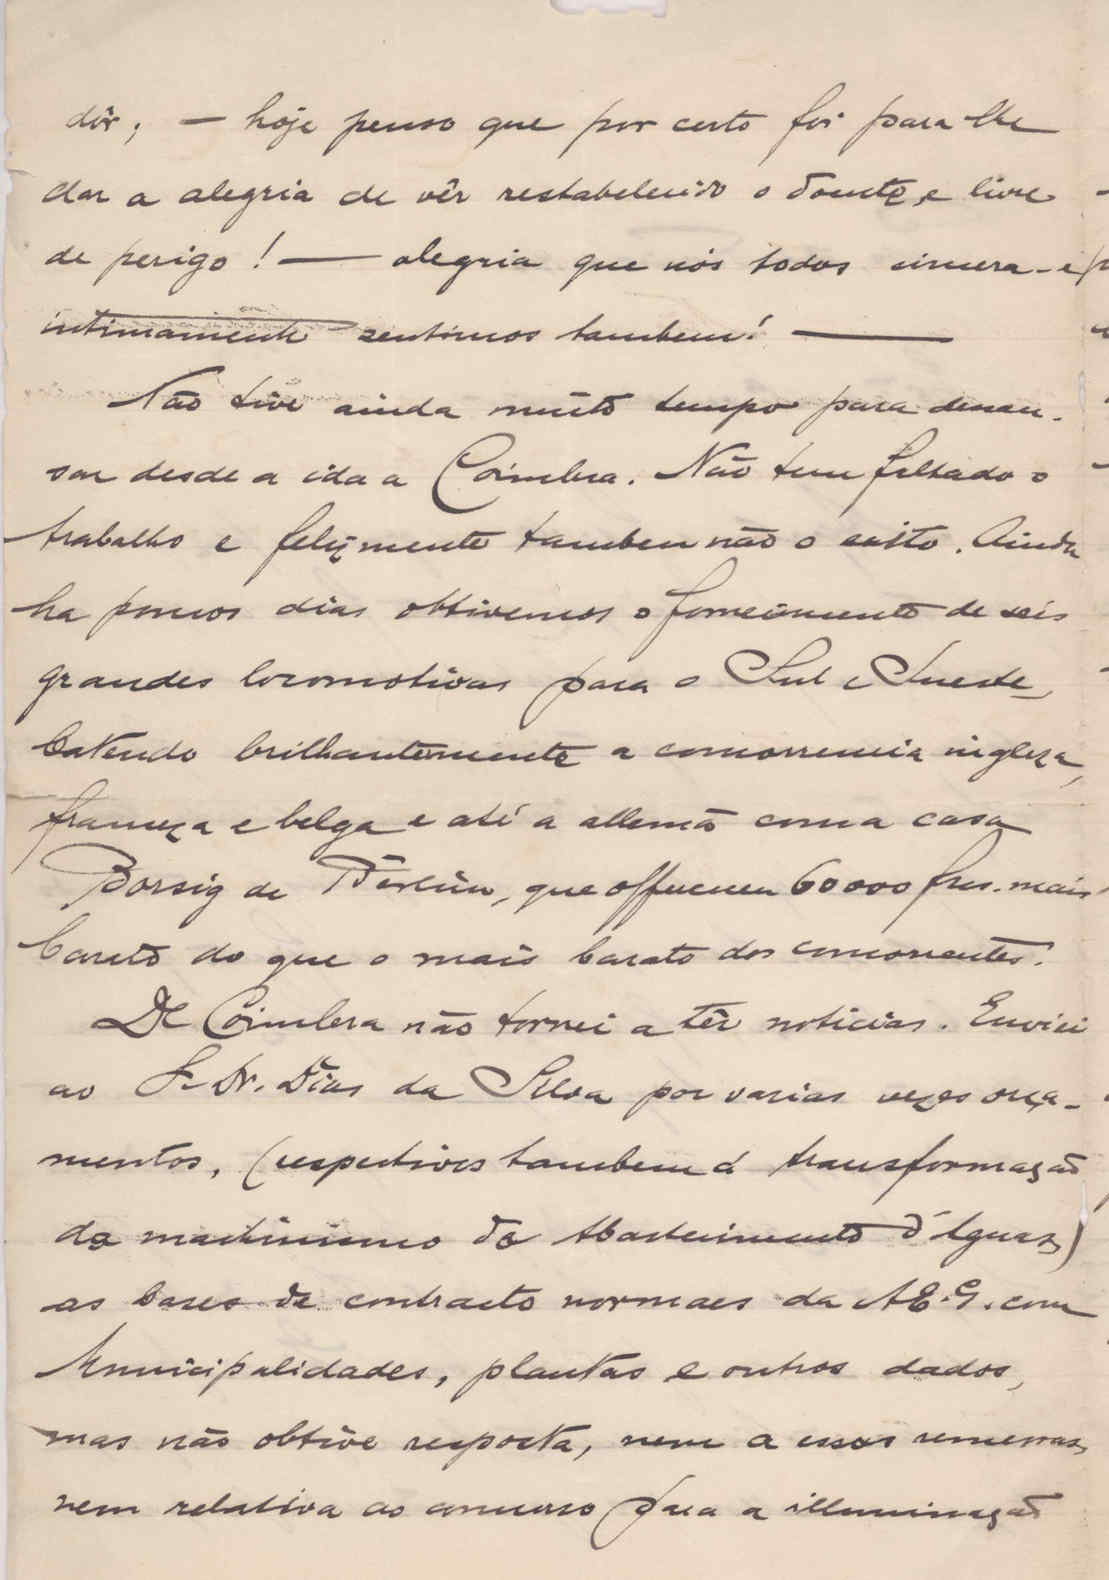 dôr, — hoje penso que por certo foi para lhe
dar a alegria de vêr restabelecido o doente, e livre
de perigo! — alegria que nós todos sincera- e
intimamente sentimos tambem! —
Não tive ainda muito tempo para descan-
sar desde a ida a Coimbra. Não tem faltado o
trabalho e felizmente tambem não o exito. Ainda
ha poucos dias obtivemos o fornecimento de seis
grandes locomotivas para o Sul e Sueste,
batendo brilhantemente a concorrencia ingleza,
franceza e belga e até a allemã com a casa
Borsig de Berlin, que offereceu 60000 frcs. mais
barato do que o mais barato dos concorrentes.
De Coimbra não tornei a têr noticias. Enviei
ao Sr. Dr. Dias da Silva por varias vezes orça-
mentos, (respectivos tambem á transformação
do machinismo do Abastecimento d'Aguas)
as bases de contracto normaes da AEG. com
Municipalidades, plantas e outros dados,
mas não obtive resposta, nem a essas remessas,
nem relativa ao concurso para a illuminação